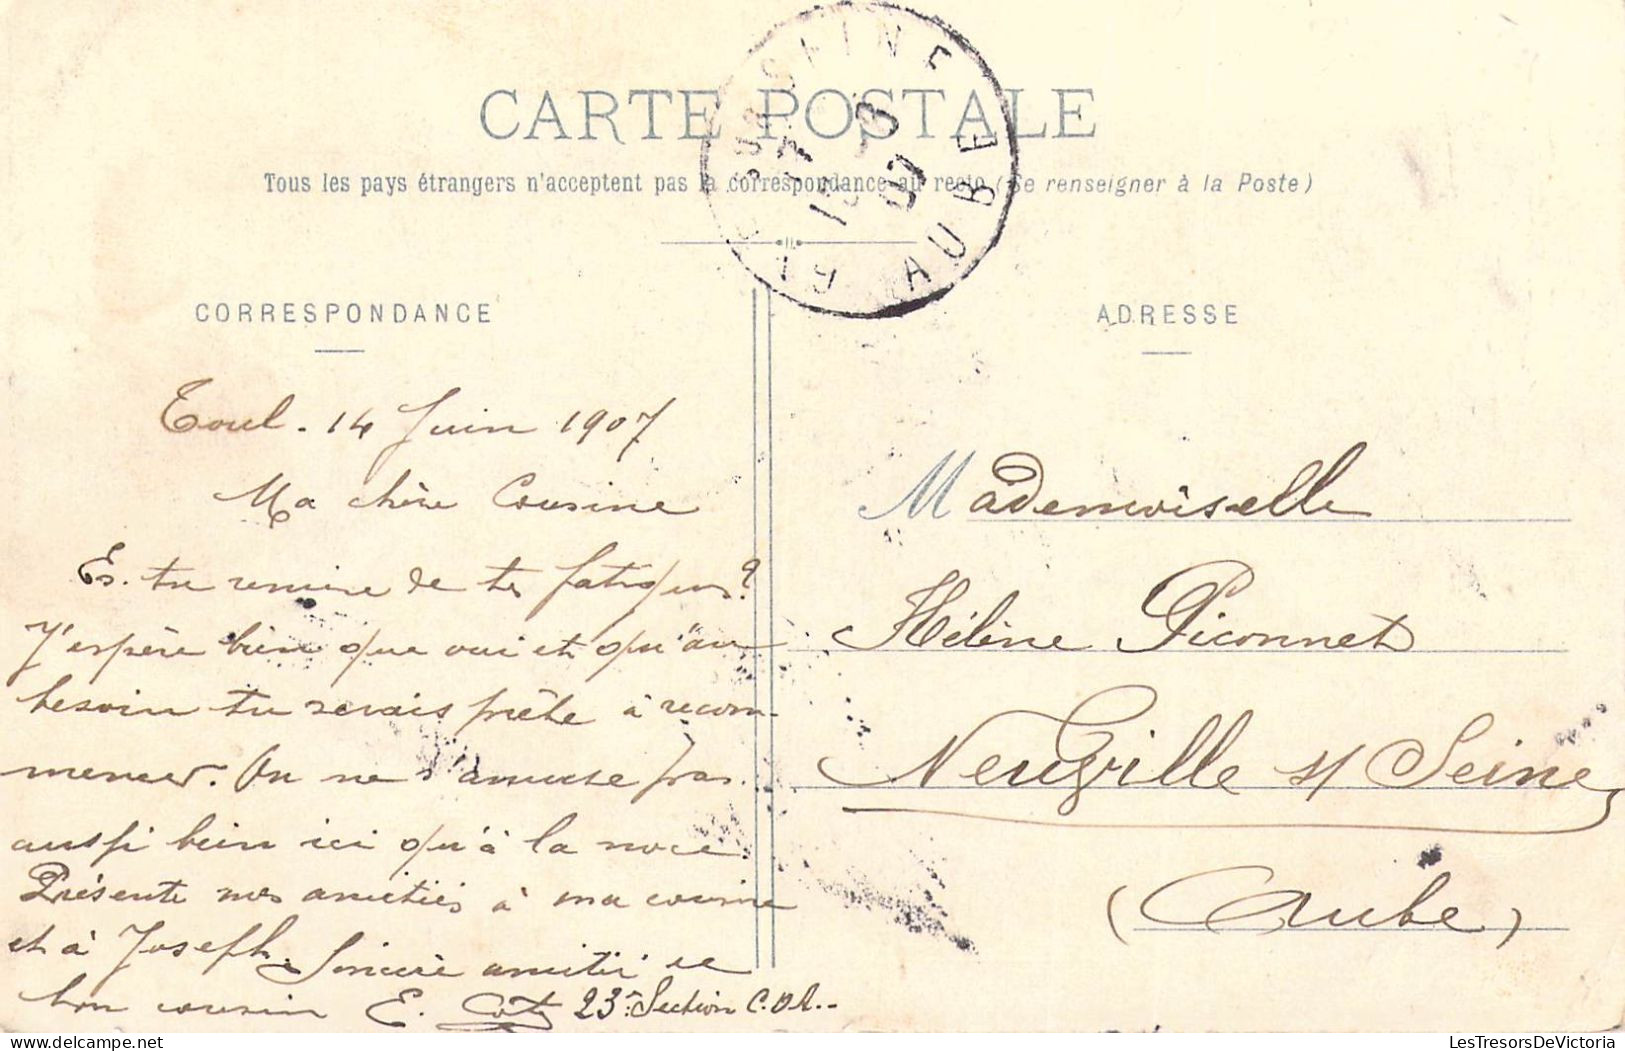 CARTE POSTALE
Tous les pays étrangers n'acceptent pas la correspondance au recto (Se renseigner à la Poste)
GYÉ SUR SEINE
AUBE
CORRESPONDANCE
Toul. 14 Juin 1907
Ma chère Cousine
Es-tu remise de tes fatigues?
J'espère bien que oui et qu'au
besoin tu serais prête à recom-
mencer. On ne s'amuse pas
aussi bien ici qu'à la noce.
Présente mes amitiés à ma cousine
et à Joseph. Sincère amitié
bon cousin E. 23e Section C.O.A.-
ADRESSE
Mademoiselle
Hélène Piconnet
Neuville s/ Seine
(Aube)
LesTresorsDeVictoria